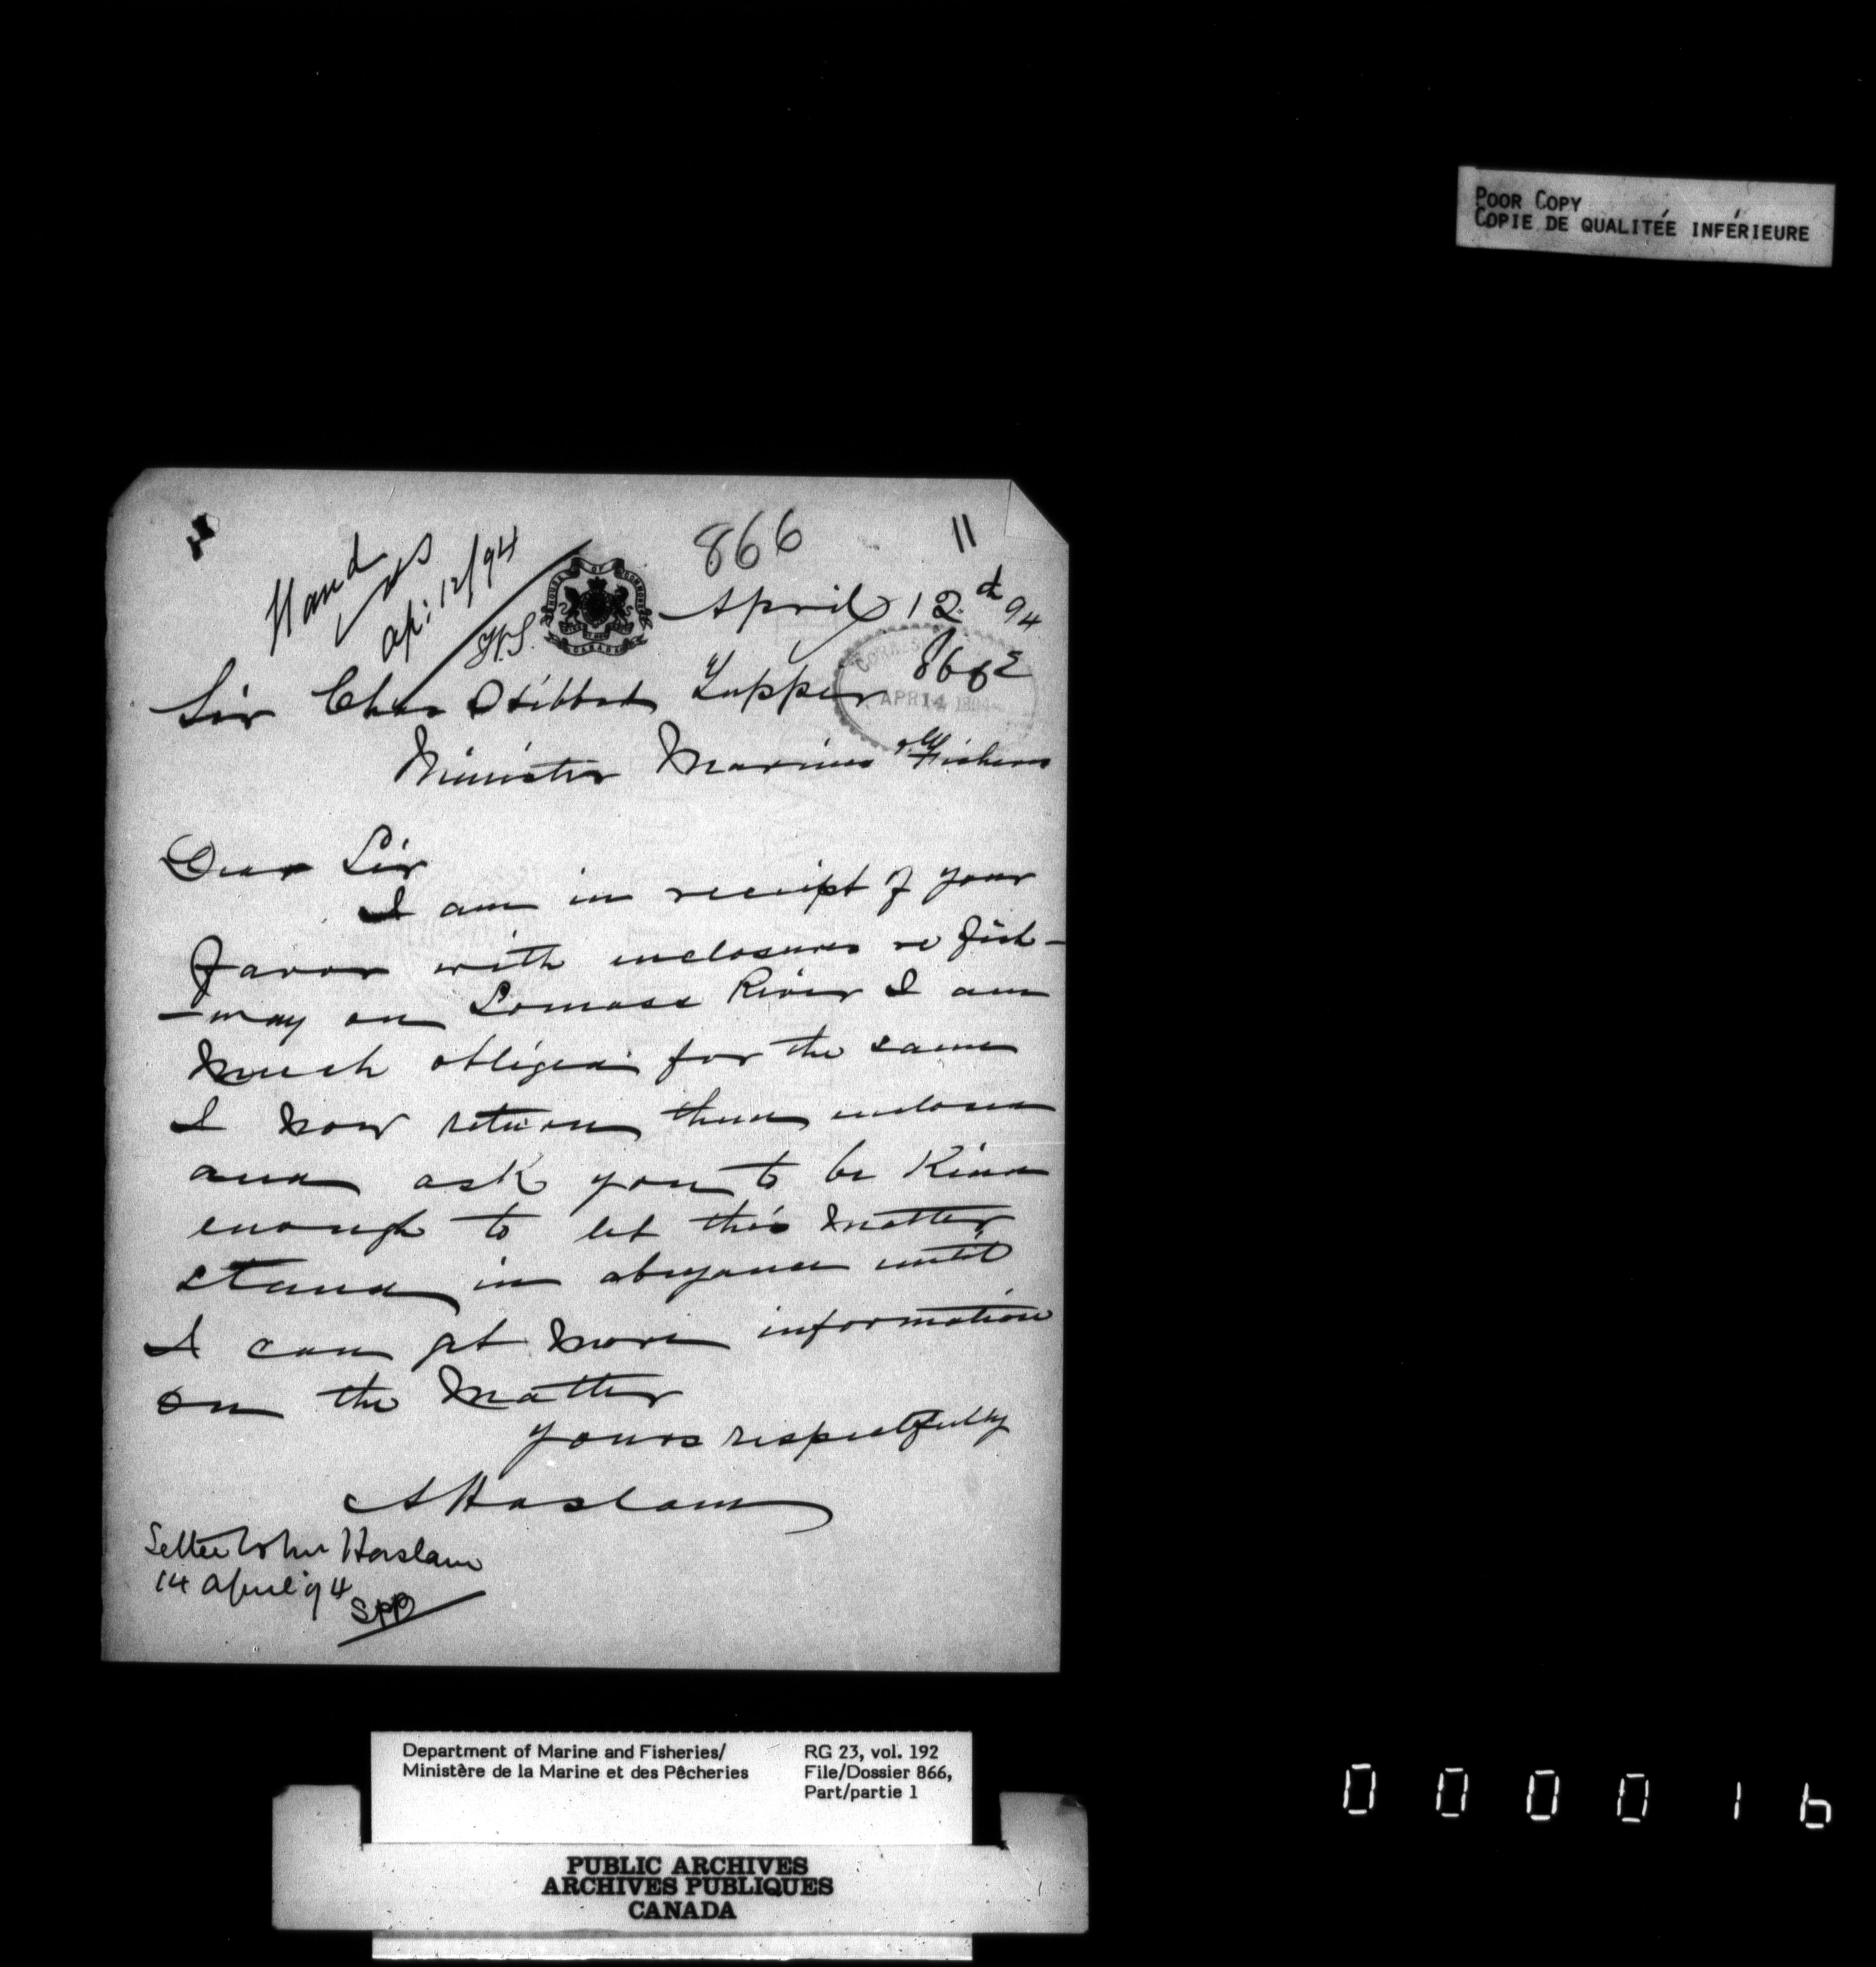 POOR COPY
COPIE DE QUALITÉE INFÉRIEURE
866
11
Hand
Apl 12/94
HOUSE OF COMMONS
CANADA
April 12th 94
866
APR 14 1894
Sir Chas Hibbert Tupper
Minister Marine & Fisheries
Dear Sir
I am in receipt of your
favor with inclosures re fish-
-way on Somass River I am
much obliged for the same
I now return them inclosed
and ask you to be kind
enough to let this matter
stand in abeyance until
I can get more information
on the matter
yours respectfully
A Haslam
Letter to Mr Haslam
14 April '94
SPB
Department of Marine and Fisheries/
Ministère de la Marine et des Pêcheries
RG 23, vol. 192
File/Dossier 866,
Part/partie 1
PUBLIC ARCHIVES
ARCHIVES PUBLIQUES
CANADA
000016